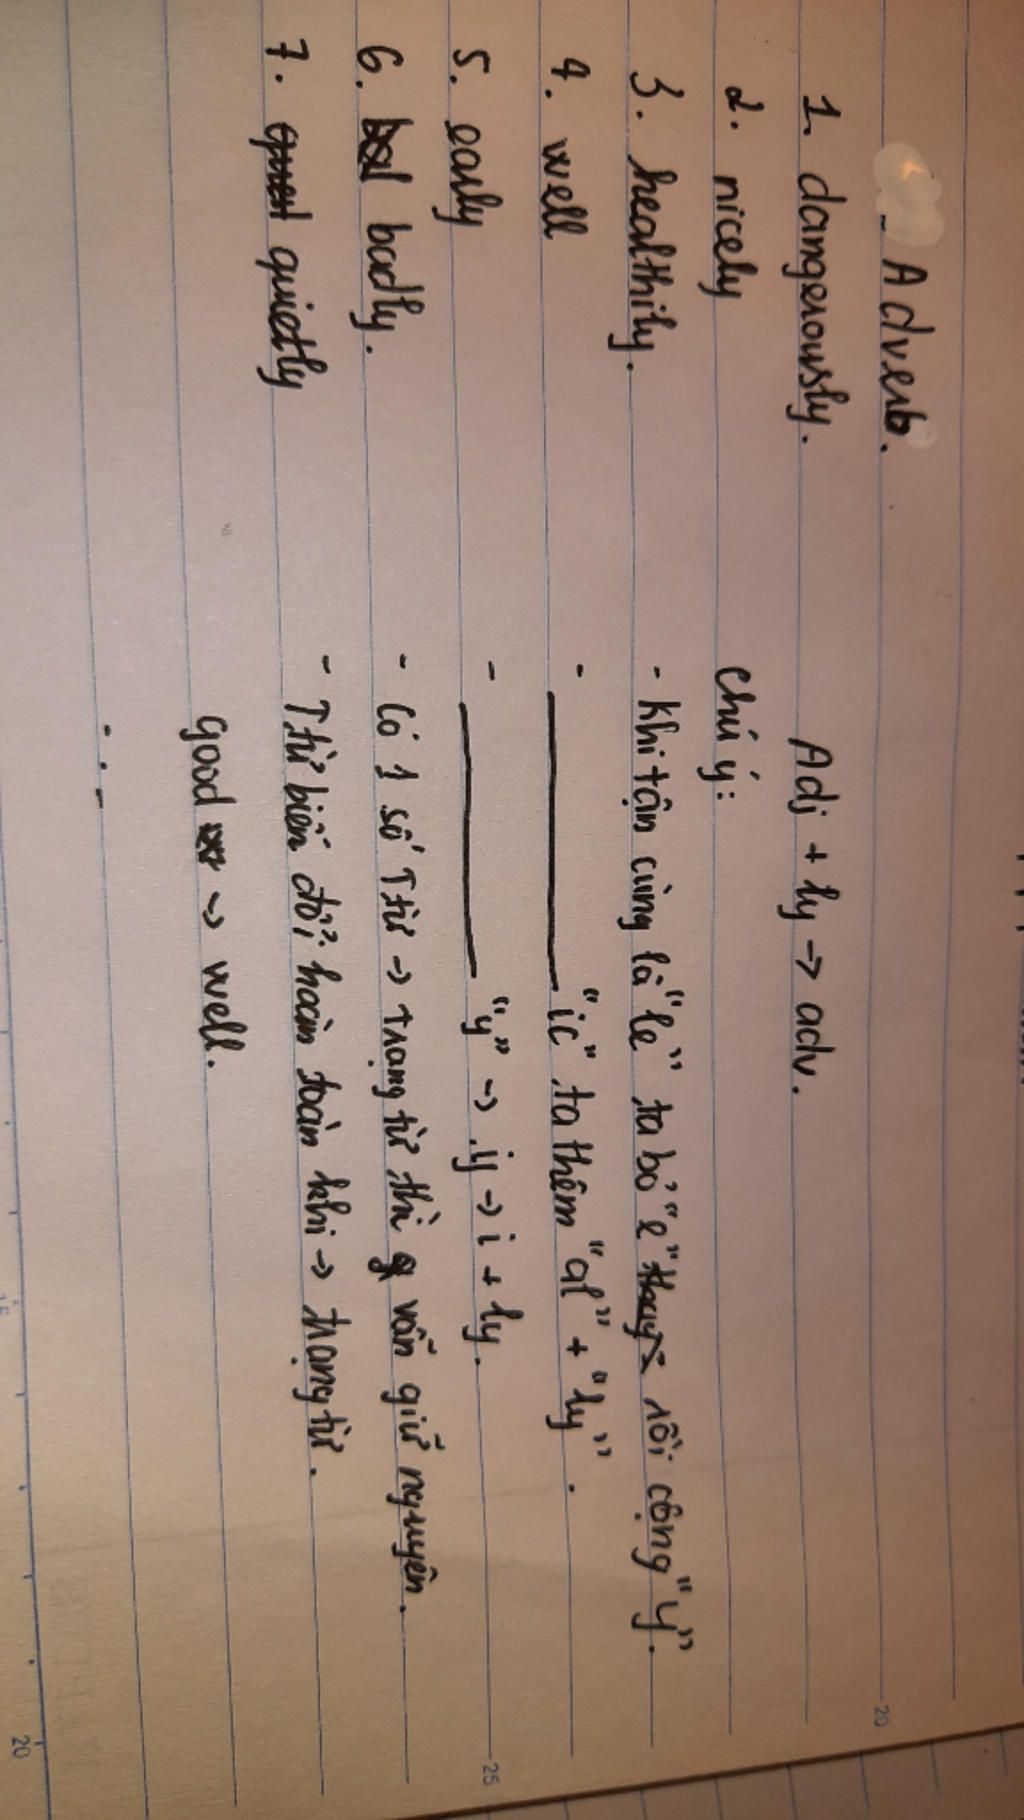 - Adverb.
1. dangerously.
2. nicely
3. healthily.
4. well
5. early
6. badly.
7. quietly
Adj + ly → adv.
Chú ý:
- Khi tận cùng là "le" ta bỏ "e" rồi cộng "y".
- ______ "ic" ta thêm "al" + "ly".
- ______ "y" → y → i + ly.
- Có 1 số Ttừ → trạng từ thì vẫn giữ nguyên.
- Ttừ biến đổi hoàn toàn khi → trạng từ.
good → well.
20
25
20